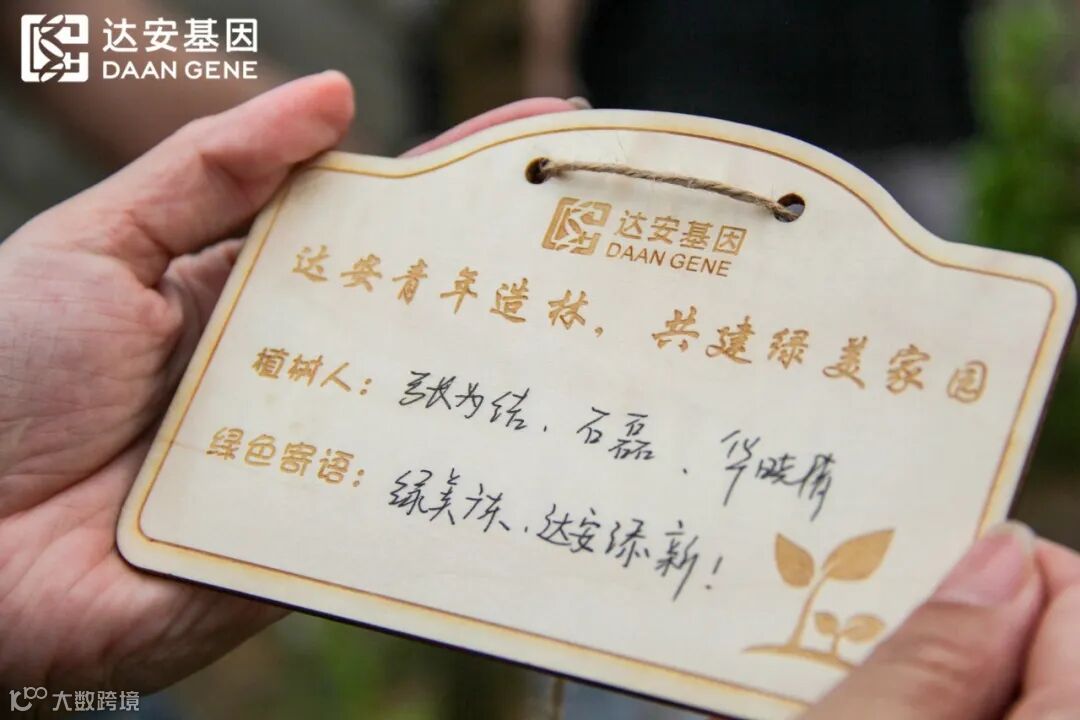 达安基因
DAAN GENE
达安基因
DAAN GENE
达安青年造林，共建绿美家园
植树人：张为结、石磊、华晓倩
绿色寄语：绿美广东、达安添新！
大数跨境